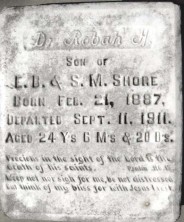 Dr. Robah F.
SON OF
E. B. & S. M. SHORE
BORN FEB. 21, 1887.
DEPARTED SEPT. 11, 1911.
AGED 24 Y's 6 M's & 20 D's.
Precious in the sight of the Lord is the
death of his saints.
Weep not nor sigh for me, be not distressed
but think of my bliss for with Jesus I rest